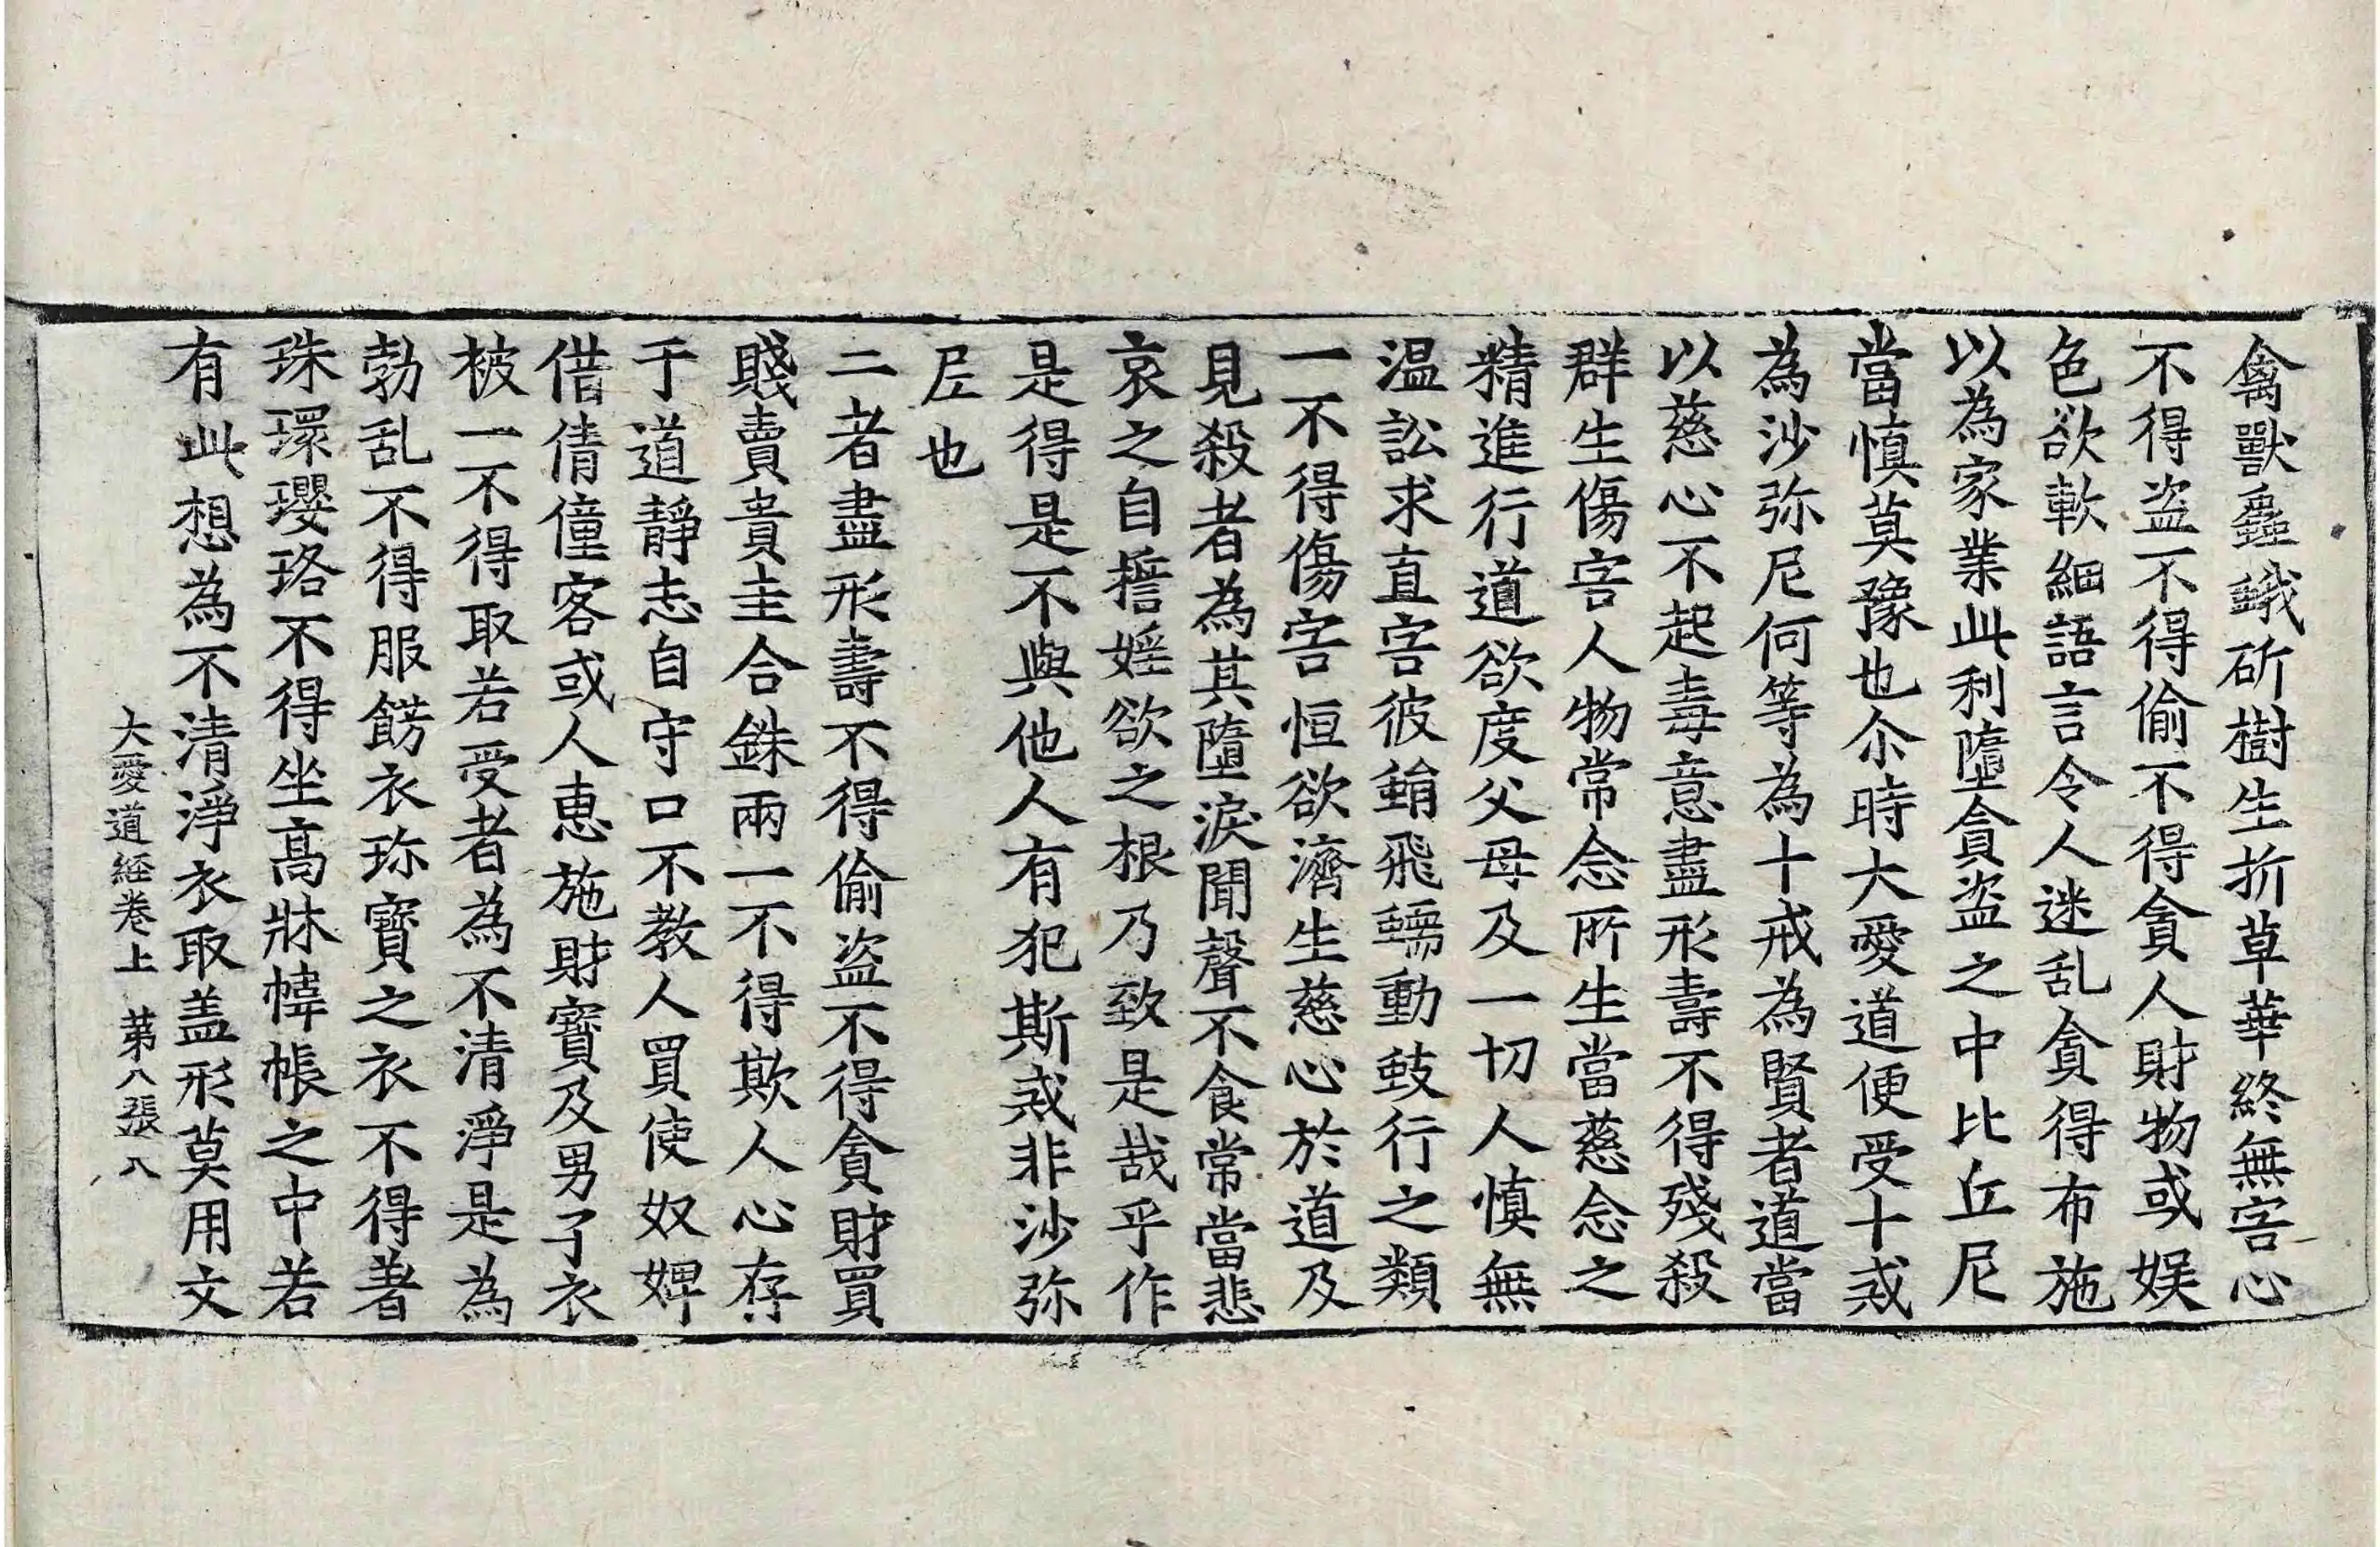 禽獸䖝蛾斫樹生折草華終無害心
不得盜不得偷不得貪人財物或娱
色欲軟細語言令人迷乱貪得布施
以為家業此利墮貪盜之中比丘尼
當慎莫豫也尒時大愛道便受十戒
為沙弥尼何等為十戒為賢者道當
以慈心不起毒意盡形壽不得殘殺
群生傷害人物常念所生當慈念之
精進行道欲度父母及一切人慎無
温訟求直害彼蜎飛蠕動蚑行之類
一不得傷害恒欲濟生慈心於道及
見殺者為其墮淚聞聲不食常當悲
哀之自誓婬欲之根乃致是哉乎作
是得是不與他人有犯斯戒非沙弥
尼也
二者盡形壽不得偷盜不得貪財買
賤賣貴圭合銖兩一不得欺人心存
于道靜志自守口不教人買使奴婢
借倩僮客或人惠施財寶及男子衣
被一不得取若受者為不清淨是為
勃乱不得服餝衣珎寶之衣不得著
珠環瓔珞不得坐高牀幃帳之中若
有此想為不清淨衣取盖形莫用文
大愛道經卷上 第八張 八